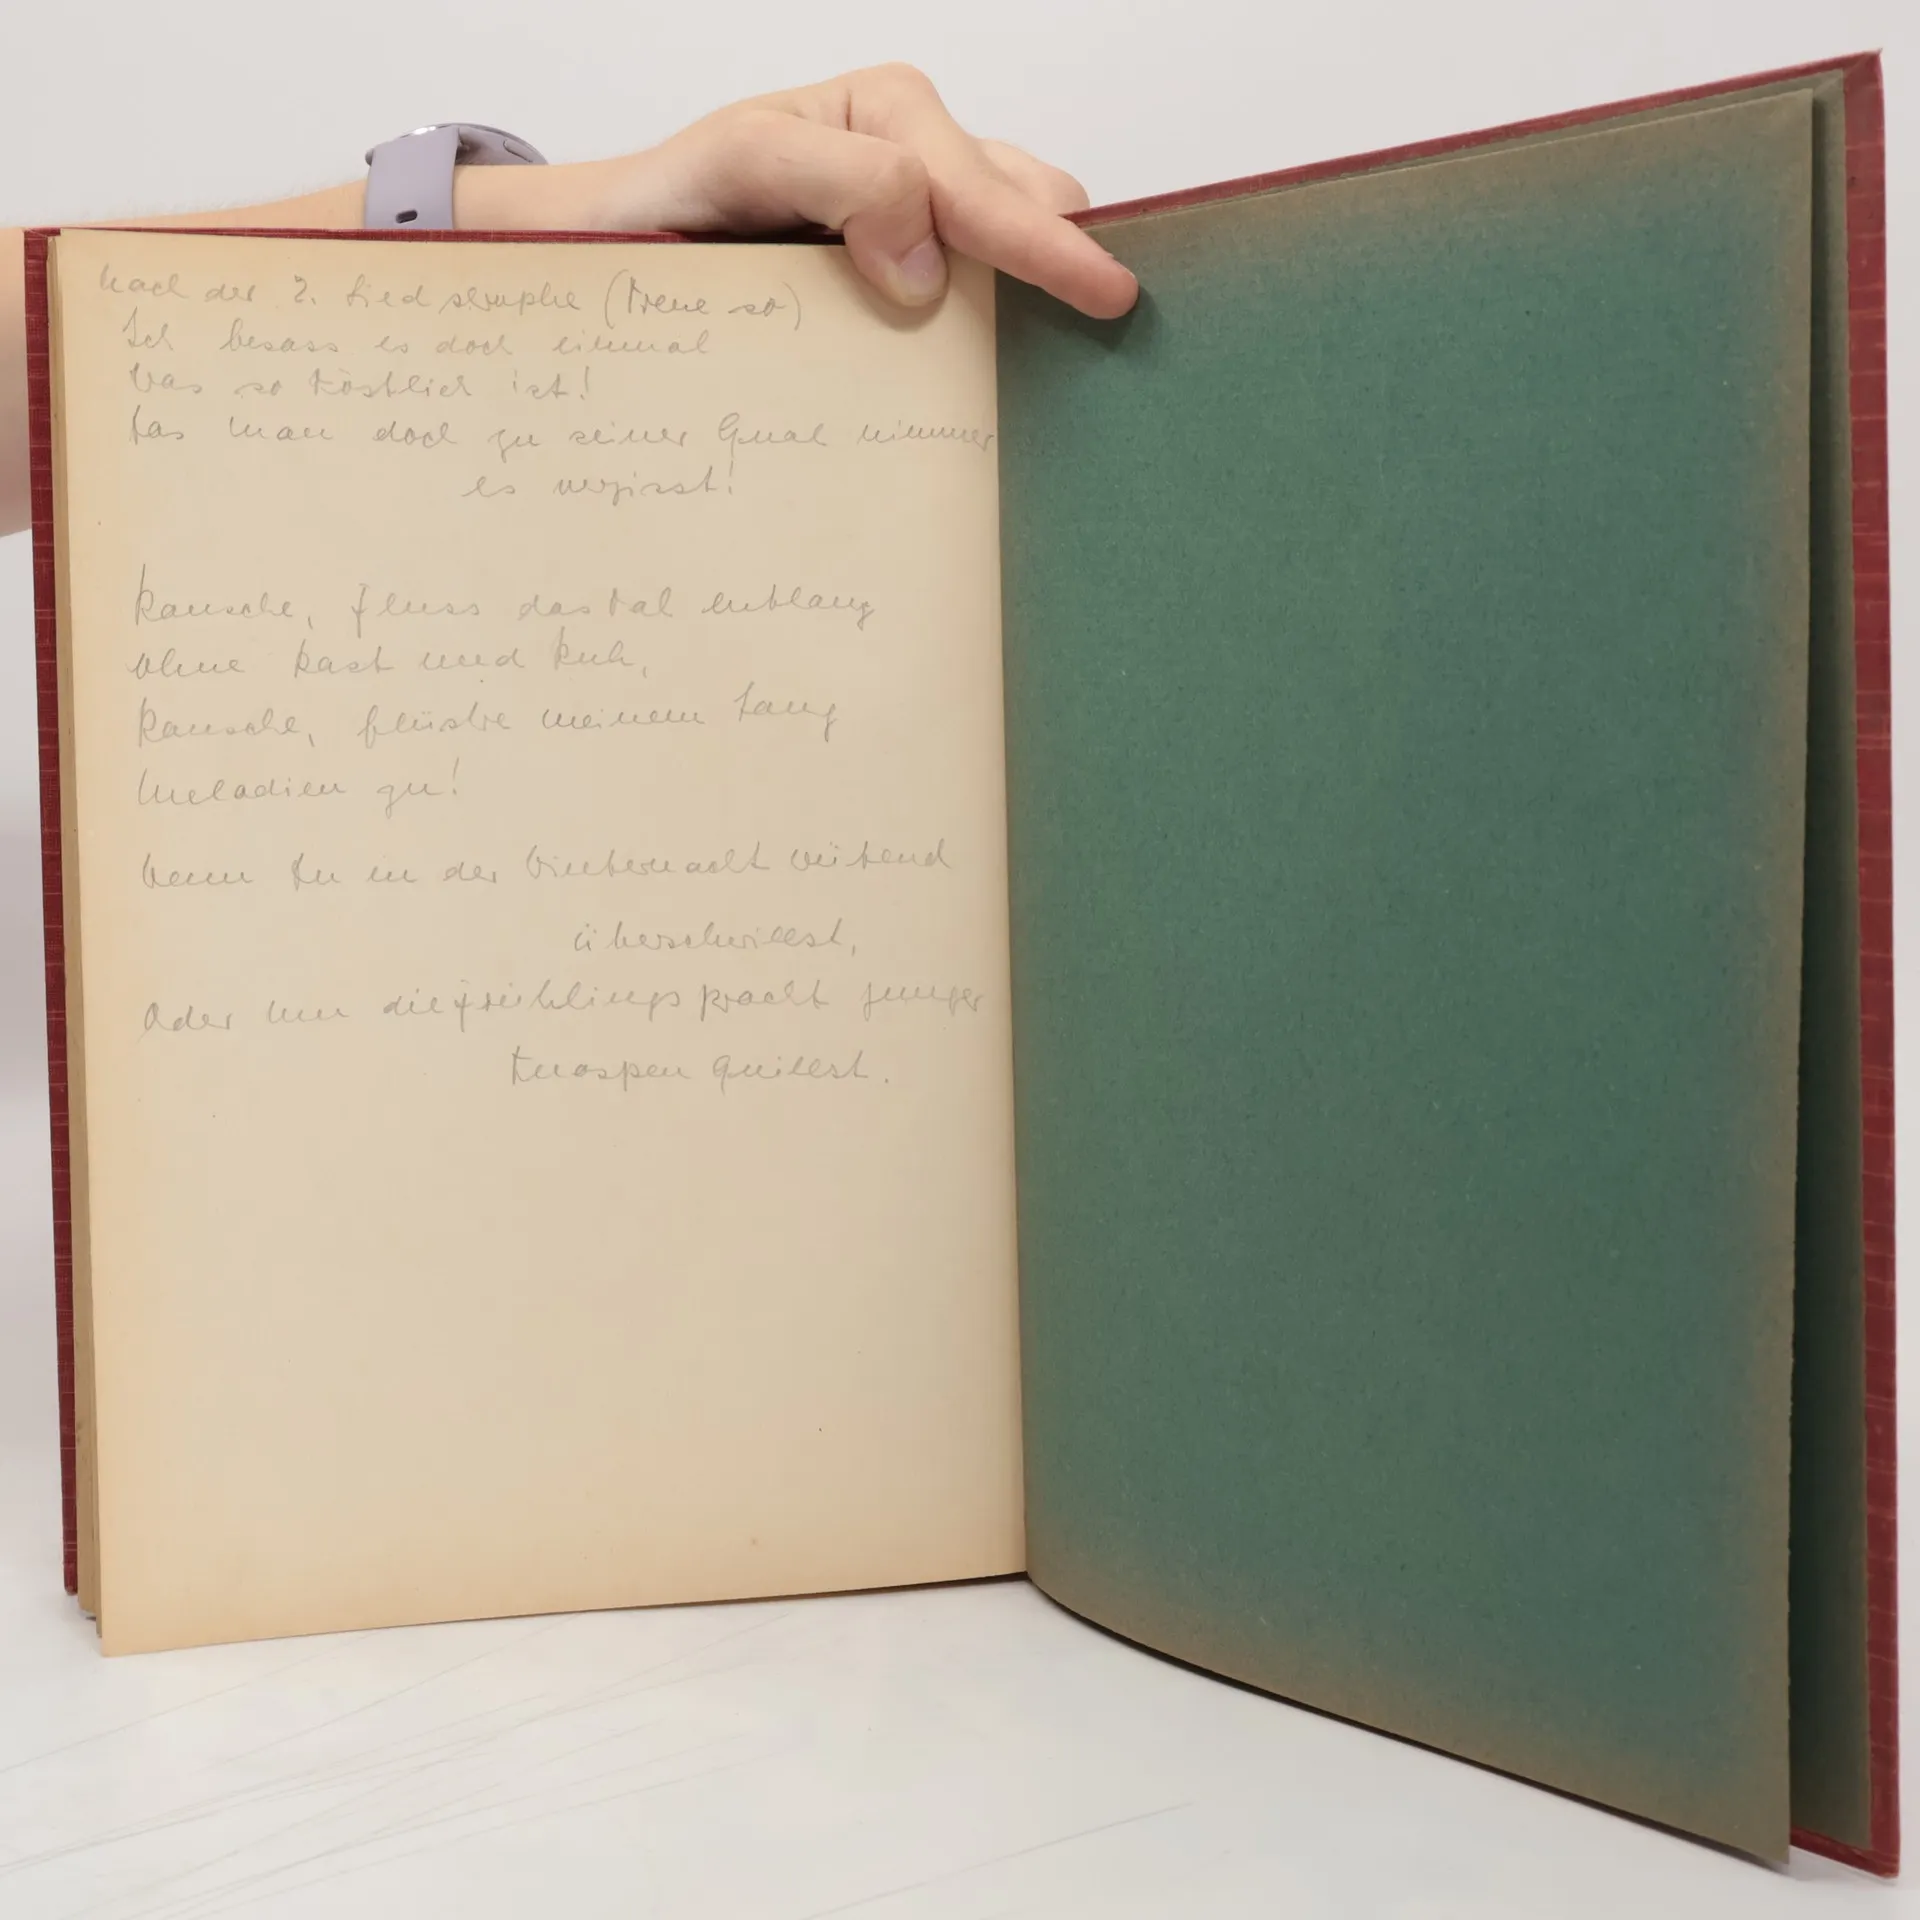 Nach der 2. Liedstrophe (Treue so)
Ich besass es doch einmal
Was so köstlich ist!
Das man doch zu seiner Qual nimmer
es vergisst!
Rausche, Fluss das Tal entlang
ohne Rast und Ruh,
Rausche, flüstre meinem Sang
Melodien zu!
Wenn Du in der Winternacht wütend
überschwillst,
Oder um die Frühlingspracht junger
Knospen Quillst.